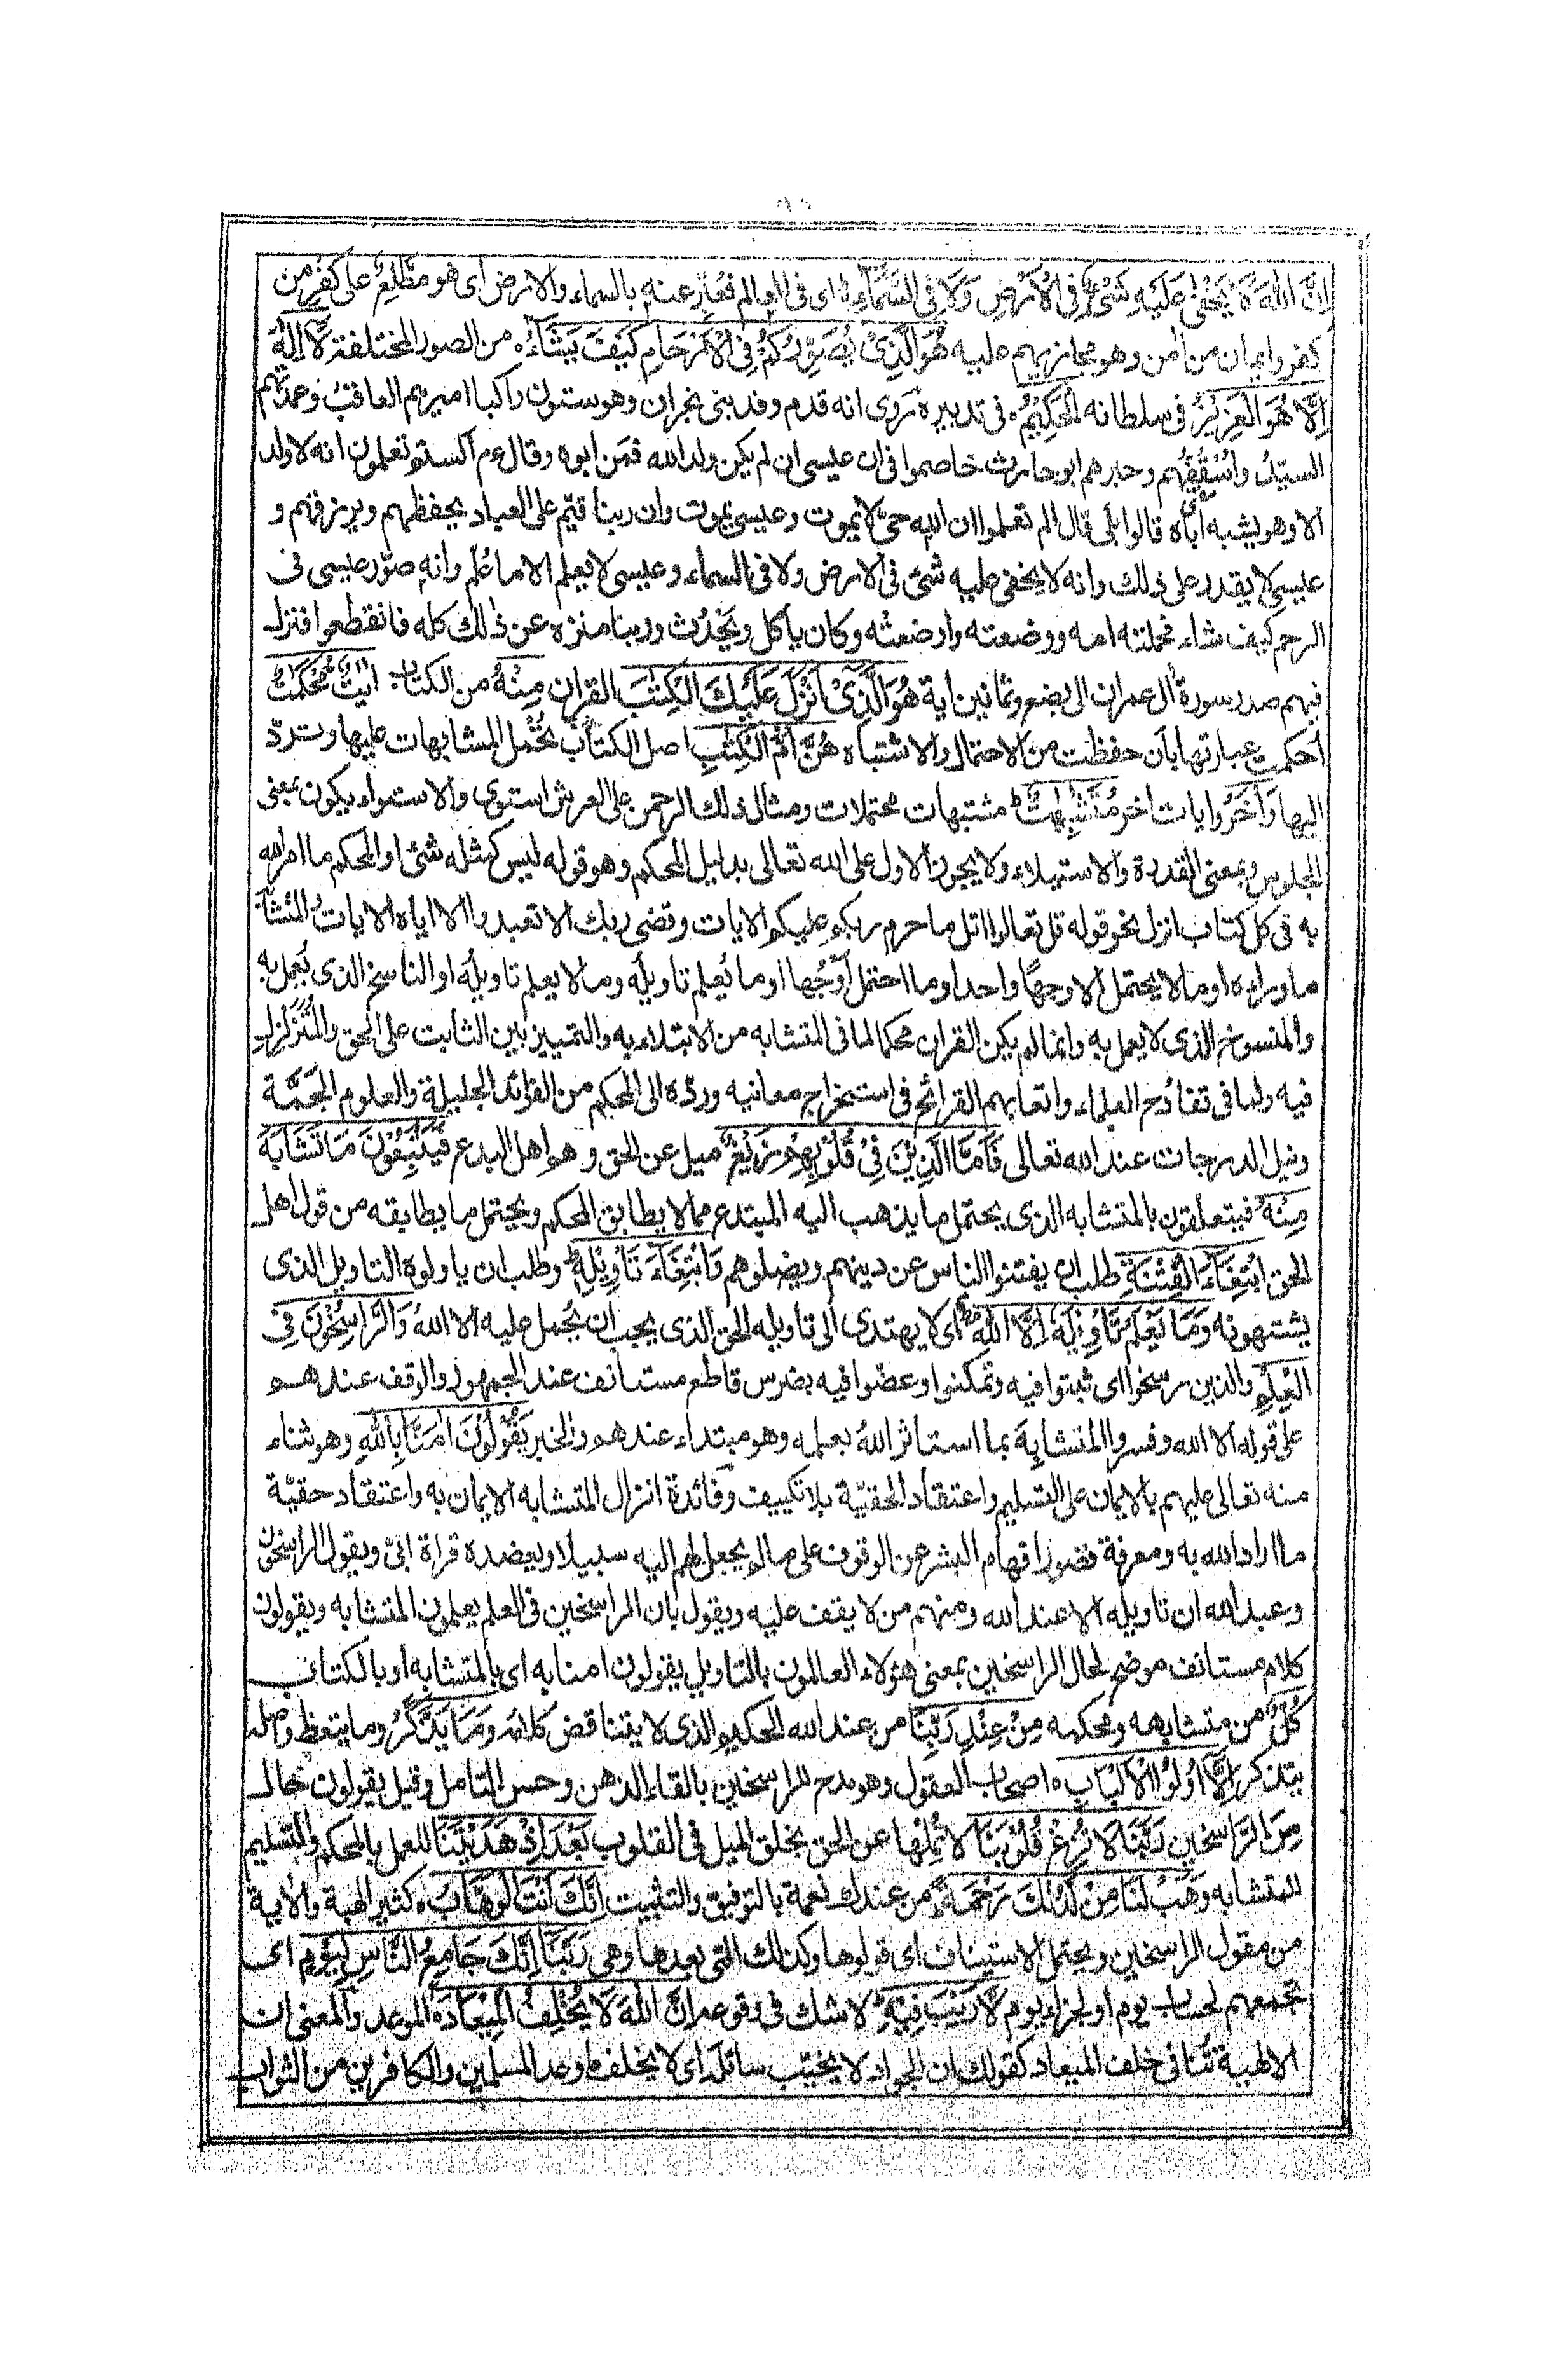 اِنَّ اللّٰهَ لَا يَخْفٰى عَلَيْهِ شَيْءٌ فِى الْاَرْضِ وَلَا فِى السَّمَآءِ اى فى العالم فعبّر عنه بالسماء والارض اى هو مطّلع على كفر من
كفر وايمان من اٰمن وهو مجازيهم عليه هُوَ الَّذِىْ يُصَوِّرُكُمْ فِى الْاَرْحَامِ كَيْفَ يَشَآءُ من الصور المختلفة لَآ اِلٰهَ
اِلَّا هُوَ الْعَزِيْزُ فى سلطانه الْحَكِيْمُ فى تدبيره رُوى انه قدم وفد بنى نجران وهو ستون راكبا اميرهم العاقب وعمدتهم
السيّد واسقفهم وحبرهم ابو حارث خاصموا فى ان عيسى ان لم يكن ولد الله فمن ابوه وقال عم الستم تعلمون انه لا ولد
الا وهو يشبه اباه قالوا بلى قال الم تعلموا ان الله حىّ لا يموت وعيسى يموت وان ربنا قيّم على العباد يحفظهم ويرزقهم و
عيسى لا يقدر على ذلك وانه لا يخفى عليه شئ فى الارض ولا فى السماء وعيسى لا يعلم الا ما عُلّم وانه صوّر عيسى فى
الرحم كيف شاء فحملته امه ووضعته وارضعته وكان يأكل ويُحْدث وربنا منزه عن ذلك كله فانقطعوا فنزل
فيهم صدر سورة اٰل عمران الى بضع وثمانين اية هُوَ الَّذِىْٓ اَنْزَلَ عَلَيْكَ الْكِتٰبَ القران مِنْهُ من الكتاب اٰيٰتٌ مُّحْكَمٰتٌ
اُحكمت عبارتها بان حفظت من الاحتمال والاشتباه هُنَّ اُمُّ الْكِتٰبِ اصل الكتاب تُحْمل المشابهات عليها وتردّ
اليها وَاُخَرُ وايات اخر مُتَشٰبِهٰتٌ مشتبهات محتملات ومثال ذلك الرحمن على العرش استوى والاستواء يكون بمعنى
الجلوس وبمعنى القدرة والاستيلاء ولا يجوز الاول على الله تعالى بدليل المحكم وهو قوله ليس كمثله شئ او المحكم ما امر الله
به فى كل كتاب انزل نحو قوله قل تعالوا اتل ما حرم ربكم عليكم الايات وقضى ربك الا تعبدوا الا اياه الايات والمتشابه
ما وراءه او ما لا يحتمل الا وجهًا واحدا وما احتمل اَوْجُها او ما يُعلم تاويله وما لا يعلم تاويله او الناسخ الذى يُعمل به
والمنسوخ الذى لا يعمل به وانما لم يكن القران محكما لما فى المتشابه من الابتلاء به والتمييز بين الثابت على الحق والمتزلزل
فيه ولما فى تقادح العلماء واتعابهم القرائح فى استخراج معانيه وردّه الى المحكم من الفوائد الجليلة والعلوم الجمّة
ونيل الدرجات عند الله تعالى فَاَمَّا الَّذِيْنَ فِىْ قُلُوْبِهِمْ زَيْغٌ ميل عن الحق وهو اهل البدع فَيَتَّبِعُوْنَ مَا تَشَابَهَ
مِنْهُ فيتعلقون بالمتشابه الذى يحتمل ما يذهب اليه المبتدع مما لا يطابق المحكم ويحتمل ما يطابقه من قول اهل
الحق ابْتِغَآءَ الْفِتْنَةِ طلب ان يفتنوا الناس عن دينهم ويضلوهم وَابْتِغَآءَ تَاْوِيْلِهٖ وطلب ان ياولوه التاويل الذى
يشتهونه وَمَا يَعْلَمُ تَاْوِيْلَهٗٓ اِلَّا اللّٰهُ اى لا يهتدى الى تاويله الحق الذى يجب ان يُحمل عليه الا اللهُ وَالرَّاسِخُوْنَ فِى
الْعِلْمِ والذين رسخوا اى ثبتوا فيه وتمكنوا وعضوا فيه بضرس قاطع مستانف عند الجمهور والوقف عندهم
على قوله الا الله وفسروا المتشابه بما استاثر اللهُ بعلمه وهو مبتداء عندهم والخبر يَقُوْلُوْنَ اٰمَنَّا بِاللهِ وهو ثناء
منه تعالى عليهم بالايمان على التسليم واعتقاد الحقيّة بلا تكييف وفائدة انزال المتشابه الايمان به واعتقاد حقيّة
ما اراد الله به ومعرفة قصور افهام البشر عن الوقوف على ما لم يجعل لهم اليه سبيلا ويعضده قراة ابىّ ويقول الراسخون
وعبد الله ان تاويله الا عند الله ومنهم من لا يقف عليه ويقول بان الراسخين فى العلم يعلمون المتشابه ويقولون
كلام مستانف موضح لحال الراسخين بمعنى هؤلاء العالمون بالتاويل يقولون امنا به اى بالمتشابه او بالكتاب
كُلٌّ من متشابهه ومحكمه مِنْ عِنْدِ رَبِّنَا من عند الله الحكيم الذى لا يتناقض كلامه وَمَا يَذَّكَّرُ وما يتعظ واصله
يتذكر اِلَّآ اُولُوا الْاَلْبَابِ اصحاب العقول وهو مدح للراسخين بالقاء الذهن وحسن التامل وقيل يقولون حال
مِنَ الرَّاسخين رَبَّنَا لَا تُزِغْ قُلُوْبَنَا لا تُمِلْها عن الحق بخلق الميل فى القلوب بَعْدَ اِذْ هَدَيْتَنَا للعمل بالمحكم والتسليم
للمتشابه وَهَبْ لَنَا مِنْ لَّدُنْكَ رَحْمَةً من عندك نعمة بالتوفيق والتثبيت اِنَّكَ اَنْتَ الْوَهَّابُ كثير الهبة والاية
من مقول الراسخين ويحتمل الاستيناف اى قولوها وكذلك التى بعدها وهى رَبَّنَآ اِنَّكَ جَامِعُ النَّاسِ لِيَوْمٍ اى
تجمعهم لحساب يوم او لجزاء يوم لَّا رَيْبَ فِيْهِ لا شك فى وقوعه اِنَّ اللّٰهَ لَا يُخْلِفُ الْمِيْعَادَ الموعد والمعنى ان
الالهية تُنافى خلف الميعاد كقولك ان الجواد لا يخيّب سائله اى لا يخلف ما وعد المسلمين والكافرين من الثواب